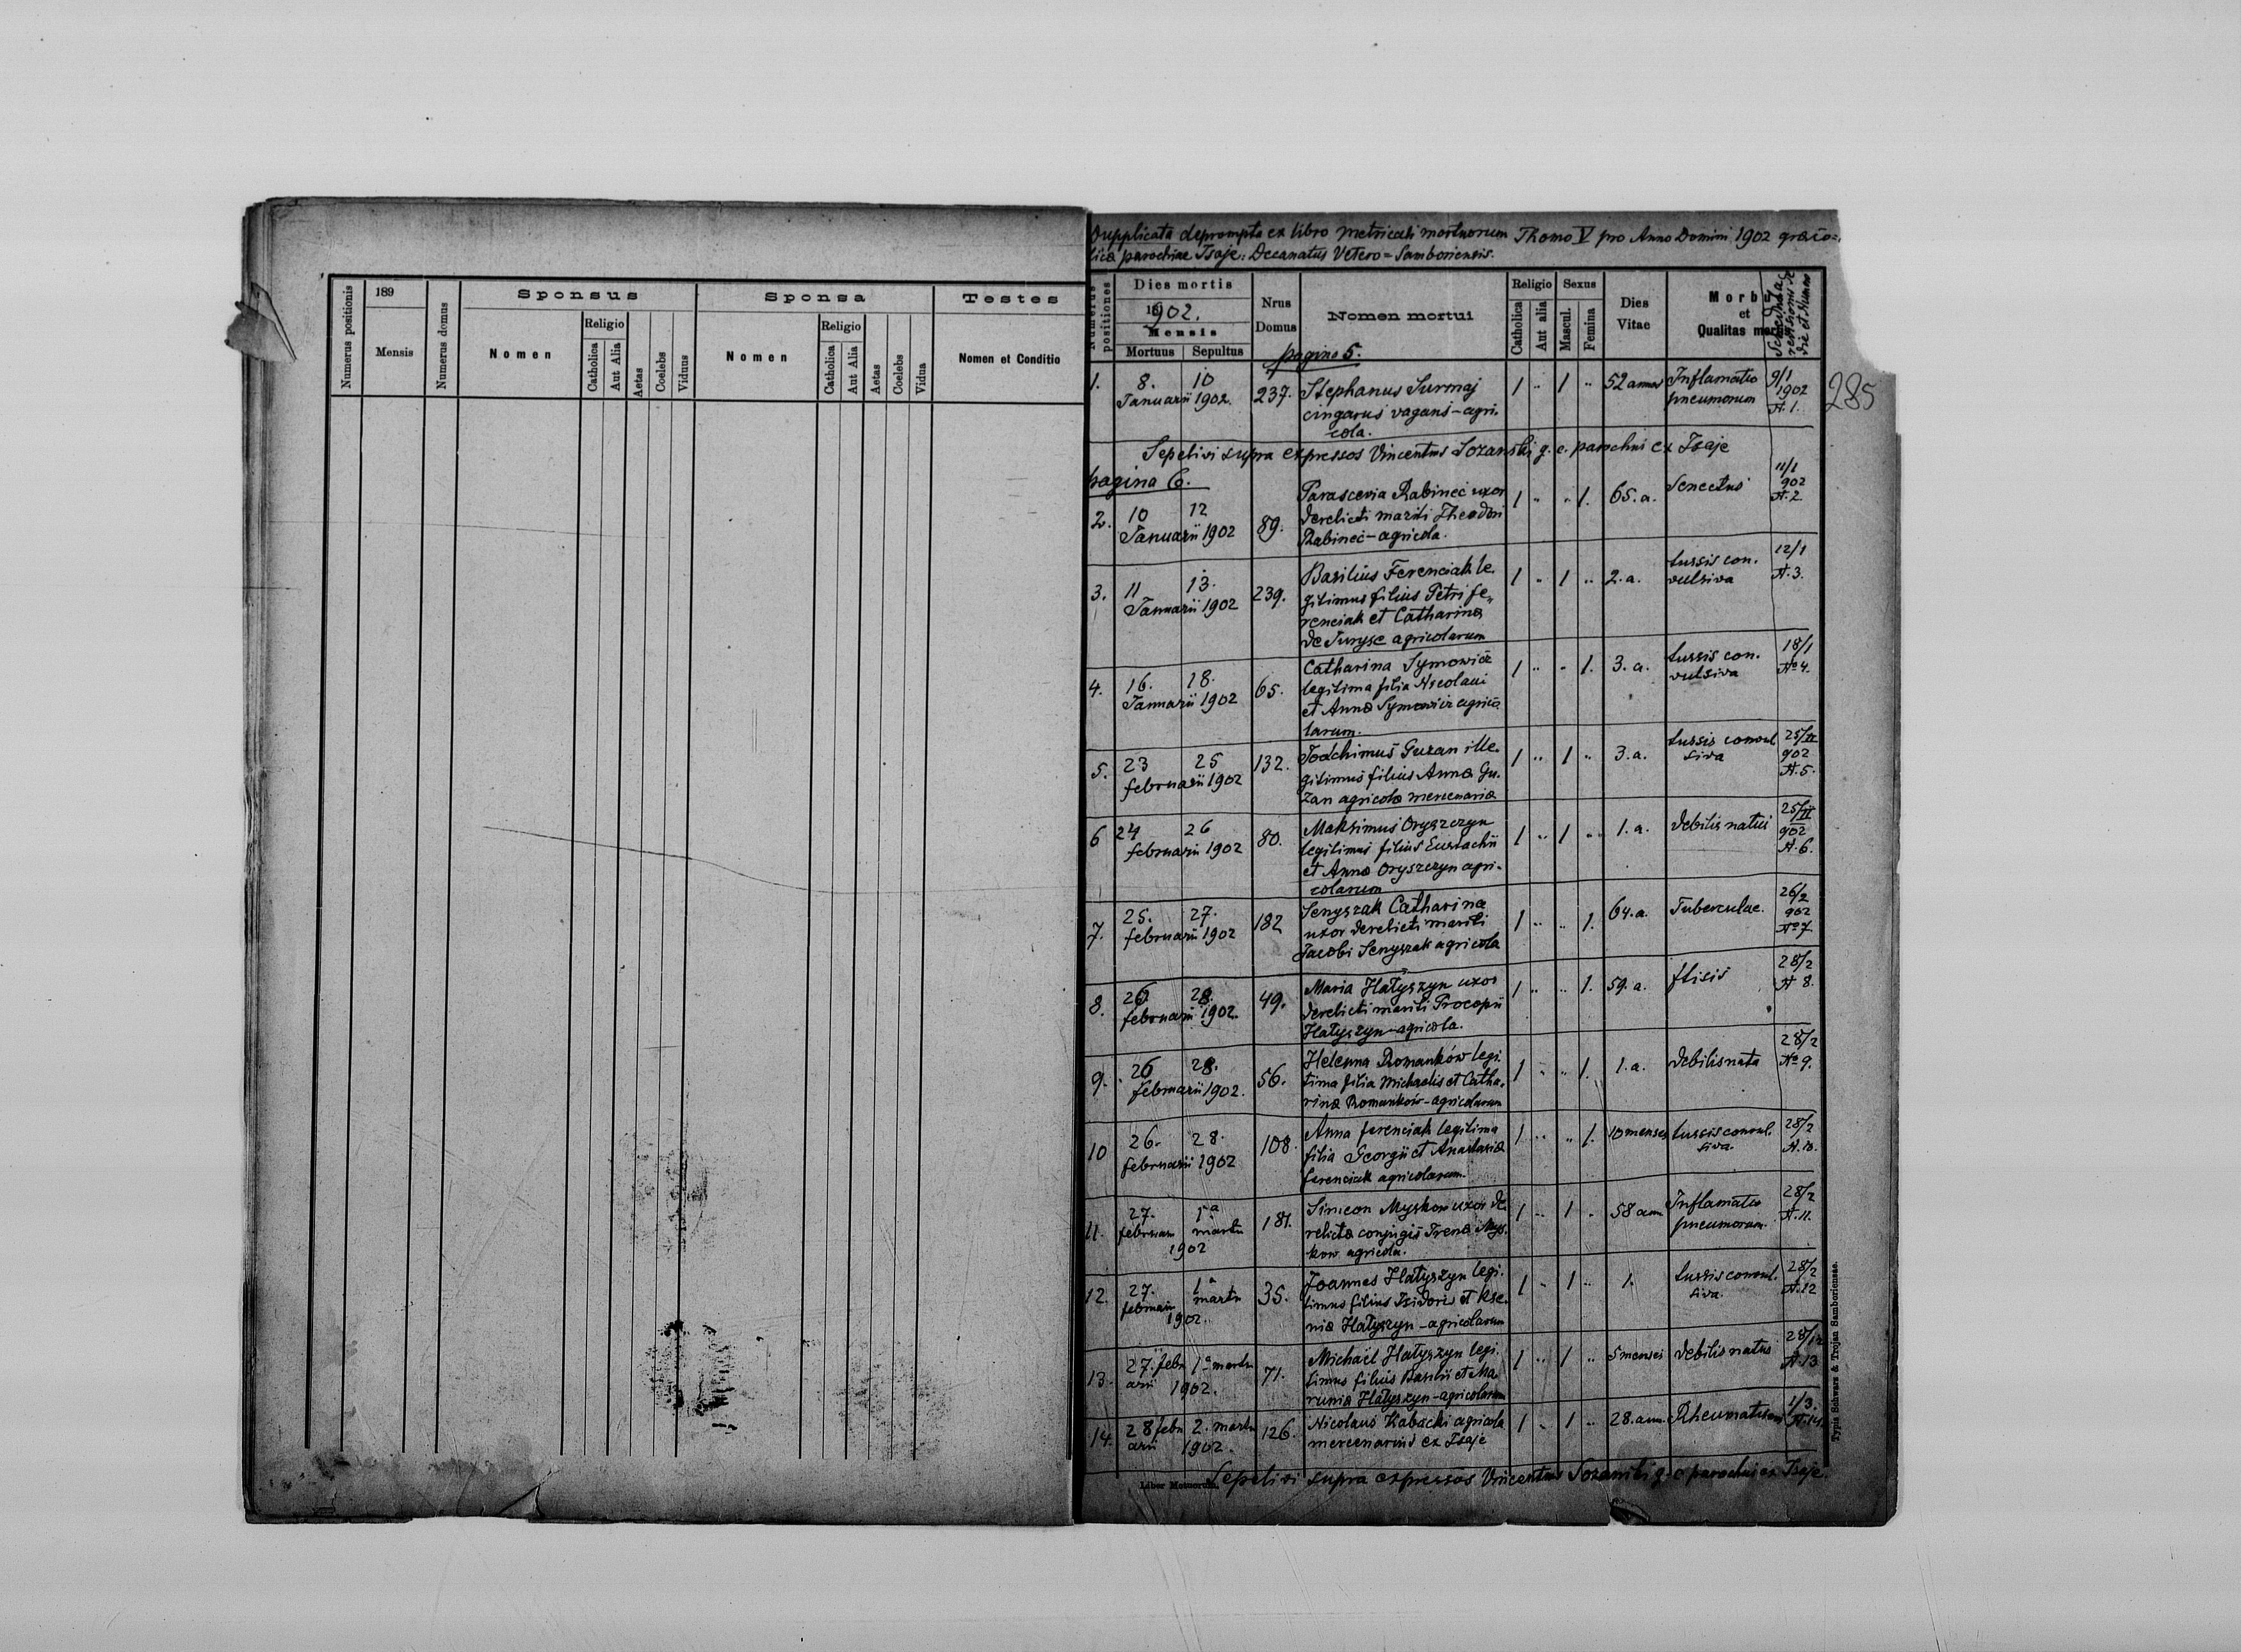 Numerus positionis
189
Mensis
Numerus domus
Sponsus
Nomen
Religio
Catholica
Aut Alia
Aetas
Coelebs
Viduus
Sponsa
Nomen
Religio
Catholica
Aut Alia
Aetas
Coelebs
Vidua
Testes
Nomen et Conditio
Dupplicata deprompta ex libro metricali mortuorum Thomo V pro Anno Domini 1902 græco=
licæ parochiae Isaje: Decanatus Vetero=Samboriensis.
Numerus positiones
Dies mortis
1902.
Mensis
Mortuus Sepultus
Nrus
Domus
Nomen mortui
pagina 5.
Religio
Catholica
Aut alia
Sexus
Mascul.
Femina
Dies
Vitae
Morbus
et
Qualitas mortis
1. 8. 10 237. Stephanus Surmaj 1 " 1 " 52 annor Inflamatio 9/1
Januarii 1902. cingarus vagans-agri- pneumonum 1902
cola. N. 1.
285
Sepelivi supra expressos Vincentus Sozański g. c. parochus ex Isaje
pagina 6.
2. 10 12 89. Parascevia Rabineć uxor 1 " " 1. 65. a. Senectus 11/1
Januarii 1902 derelicti mariti Theodori 902
Rabineć-agricola. N. 2
3. 11 13. 239. Basilius Ferenciak le- 1 " 1 " 2. a. tussis con- 12/1
Januarii 1902 gitimus filius Petri fe- vulsiva N. 3.
renciak et Catharinæ
de Turysc agricolarum
4. 16. 18. 65. Catharina Symowicz 1 " " 1. 3. a. tussis con- 18/1
Januarii 1902 legitima filia Nicolaui vulsiva No 4.
et Annæ Symowicz agrico
larum.
5. 23 25 132. Joachimus Guzan ille- 1 " 1 " 3. a. tussis convul 25/II
februarii 1902 gitimus filius Annæ Gu- siva 902
zan agricolæ mercenariæ N. 5.
6 24 26 80. Maksimus Oryszczyn 1 " 1 " 1. a. debilis natui 25/II
februarii 1902 legitimus filius Eustachii 902
et Annæ Oryszczyn agri- N. 6.
colarum
7. 25. 27. 182 Senyszak Catharina 1 " " 1. 64. a. Tuberculae. 26/2
februarii 1902 uxor derelicti mariti 902
Jacobi Senyszak agricola No 7
8. 26 28. 49. Maria Hałyszyn uxor 1 " " 1. 59. a. ftisis 28/2
februarii 1902. derelicti mariti Procopii N 8.
Hałyszyn-agricola.
9. 26 28. 56. Helenna Romanków legi- 1 " " 1. 1. a. debilis nata 28/2
februarii 1902. tima filia Michaelis et Catha- No 9.
rinæ Romanków-agricolarum
10 26. 28. 108. Anna ferenciak legitima 1 " " 1. 10 menses tussis convul- 28/2
februarii 1902 filia Georgii et Anastasiæ siva. N. 10.
ferenciak agricolarum.
11. 27. 1a 181. Simeon Myskow uxor de 1 " 1 " 58 ann Inflamatio 28/2
februarii martii relictæ conjugis Irenæ Mys- pneumonum. N. 11.
1902 kow agricola.
12. 27. 1a 35. Joannes Hałyszyn legi- 1 " 1 " 1. tussis convul- 28/2
februarii martii timus filius Isidoris et Kse- siva. N. 12
1902. niæ Hałyszyn-agricolarum
13. 27. febru 1a martii 71. Michaël Hałyszyn legi- 1 " 1 " 5 menses debilis natus 28/2
arii 1902. timus filius Basilii et Ma N. 13
runiæ Hałyszyn-agricolarum
14. 28 febru 2. martii 126. Nicolaus Kabacki agricola 1 " 1 " 28. ann. Rheumatismus 1/3.
arii 1902. mercenarius ex Isaje N. 14.
Liber Motuorum.
Sepelivi supra expressos Vincentus Sozański g. c parochus ex Isaje.
Typis Schwarz & Trojan Samboriensae.